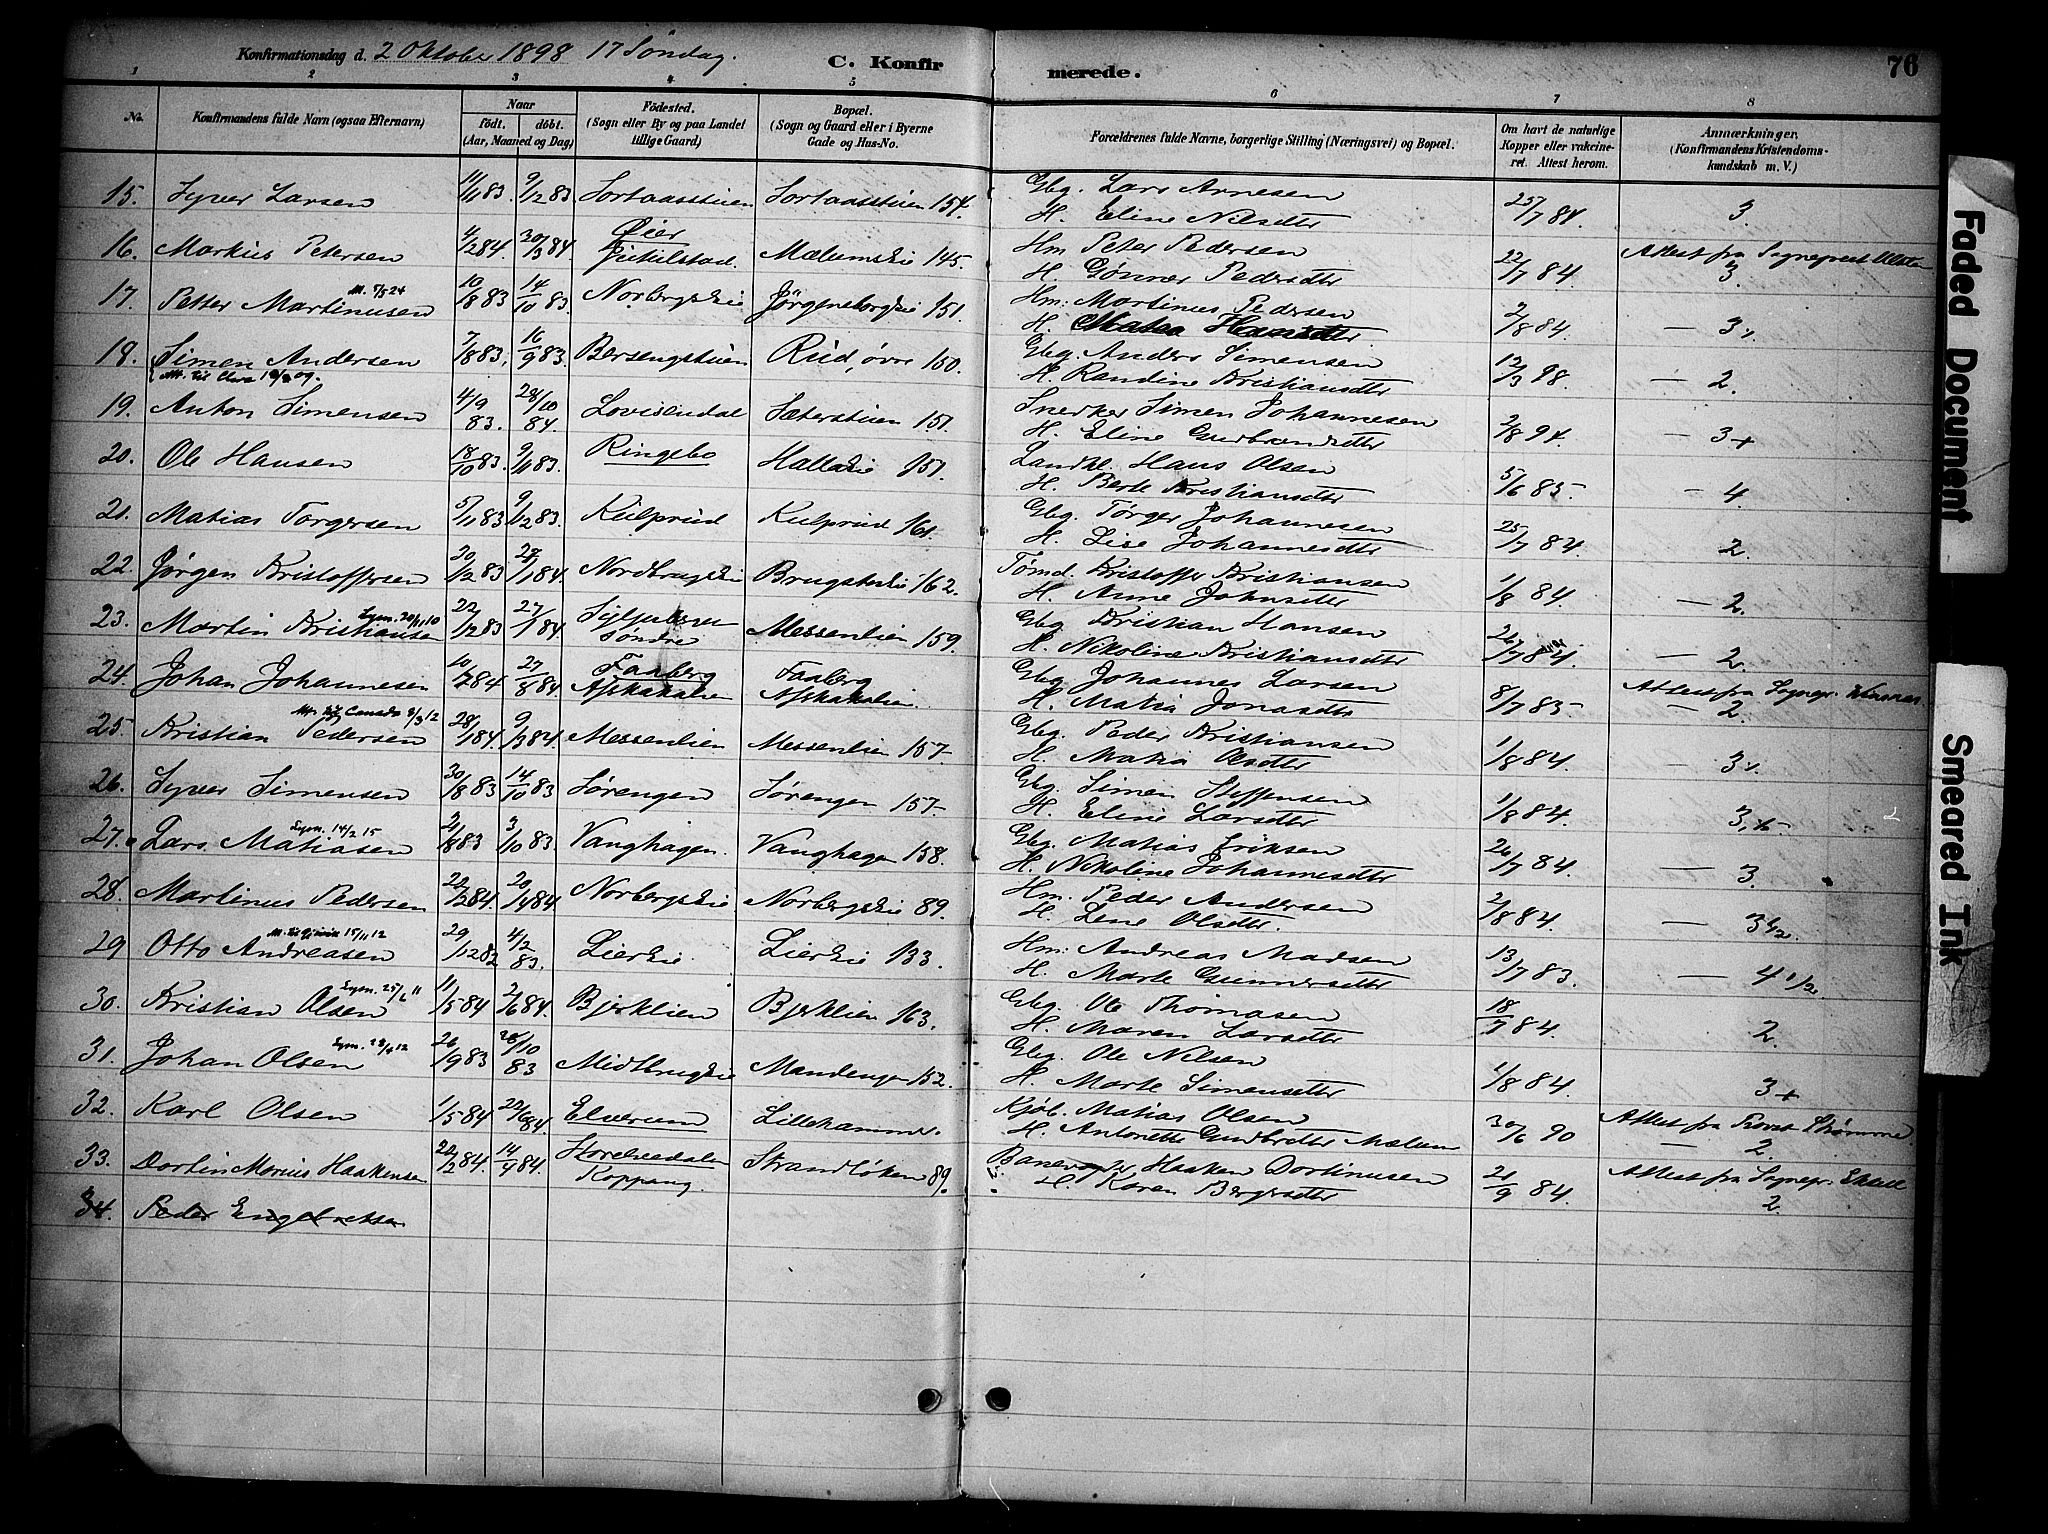 Konfirmationsdag d. 2 Oktober 1898 17 Søndag. C. Konfirmerede. 76
1 2 3 4 5 6 7 8
No. Konfirmandens fulde Navn (ogsaa Efternavn) Naar født. døbt. (Aar, Maaned og Dag) Födested. (Sogn eller By og paa Landet tillige Gaard) Bopæl. (Sogn og Gaard eller i Byerne Gade og Hus-No. Forældrenes fulde Navne, borgerlige Stilling (Næringsvei) og Bopæl. Om havt de naturlige Kopper eller vakcineret. Attest herom. Anmærkninger. (Konfirmandens Kristendomskundskab m. V.)
15. Syver Larsen 11/11 83. 9/12 83 Sortaasstuen Sortaasstuen 154. Gbg. Lars Arnesen
H. Eline Nilsdtr 25/7 84. 3.
16. Markus Petersen 4/2 84. 30/3 84 Øier Mælumseie 145. Hm Peter Pedersen
H. Gønner Pedersdtr 22/7 84. Attest fra Sogneprest 3.
17. Petter Martinusen 10/8 83 14/10 83. Norbergseie Jörgensborgeie 151. Hm: Martinus Pedersen
H. 2/8 84. — 3+
18. Simen Andersen 7/8 83. 16/9 83. Bersengstuen Rud, øvre 150. Gbg. Anders Simensen
H. Randine Kristiansdtr 12/3 98. — 2.
19. Anton Simensen 4/9 83. 28/10 84. Lovisendal Sæterstuen 151. Snerker Simen Johannesen
H. Eline Gudbrandsdtr 2/8 94. — 3+
20. Ole Hansen 18/10 83. 9/11 83. Ringebo 151. Landhl. Hans Olsen
H. Berte Kristiansdtr 5/6 85. — 4.
21. Matias Torgersen 5/11 83 9/12 83. Kulprud Kulprud 161. Gbg. Törger Johannesen
H. Lise Johannesdtr 25/7 84. 2.
22. Jørgen Kristoffersen 20/12 83 1 84. Nordbrugseie 162. Tømd. Kristoffer Kristiansen
H. Anne Johnsdtr 1/8 84. — 2.
23. Martin Kristiansen 22/12 83 27/1 84. søndre Messenlien 159. Gbg Kristian Hansen
H. Nikoline Kristiansdtr 26/7 84. — 2.
24. Johan Johannesen 10/7 84 27/8 84. Faaberg Faaberg Gbg Johannes Larsen
H. Matia Jonasdtr 8/7 85 Attest fra Sognepr. — 2.
25. Kristian Pedersen M. til Canada 28/1 84. 9/3 84. Messenlien Messenlien 157. Gbg. Peder Kristiansen
H. Matia Olsdtr 1/8 84. 3+
26. Syver Simensen 30/8 83 14/10 83 Sørengen Sørengen 157. Gbg. Simen Steffensen
H. Eline Larsdtr 1/8 84. 3,+
27. Lars Matiasen 14/2 15 21/8 83 3/10 83. Vanghagen. Vanghagen 158. Gbg. Matias Eriksen
H. Nikoline Johannesdtr 26/7 84. 3.
28. Martinus Pedersen 84. 20/4 84. Norbergseie. Norbergseie 89. Hm. Peder Andersen
H. Lene Olsdtr. 2/8 84. 3 1/2.
29 Otto Andreasen 29/12 82 4/2 83. Liereie. Liereie 133. Hm: Andreas Madsen
H. Marte Gunnersdtr 13/7 83. — 4 1/2
30. Kristian Olsen 11/5 84 2/6 84. Bjerklien Bjerklien 163. Gbg. Ole Thomasen
H. Maren Larsdtr 18/7 84. 2.
31. Johan Olsen 26/9 83 28/10 83 Midtbrugseie Mandengen 152. Gbg. Ole Nilsen
H. Marte Simensdtr 1/8 84. 3+
32. Karl Olsen 1/5 84 22/6 84. Elverum Lillehammer. Kjøb. Matias Olsen
H. Antonette Gundbrdtr Mælum 30/6 90 Attest fra Provst Strømme — 2.
33. Dortin Marius Haakensen 22/2 84. 14/4 84. Storelvedalen Koppang. Strandløken 89. Banevogter Haaken Dortinusen
H. Karen Bergersdtr 21/9 84. Attest fra Sognepr. 2.
34. Peder Engebretsen
Faded Document
Smeared Ink